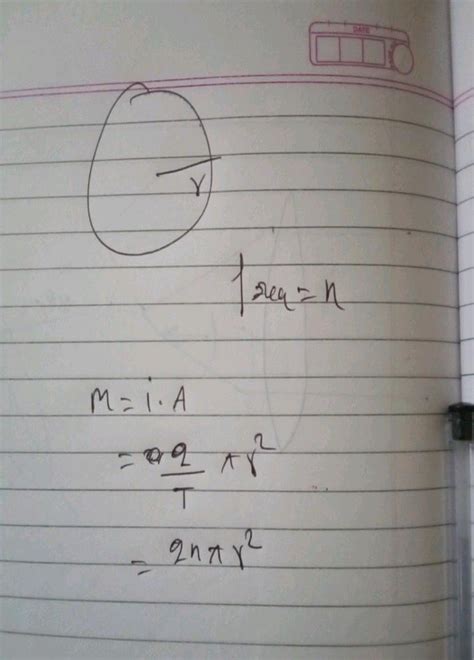 DATE
r
freq = n
M = i. A
= q/T πr²
= qnπr²